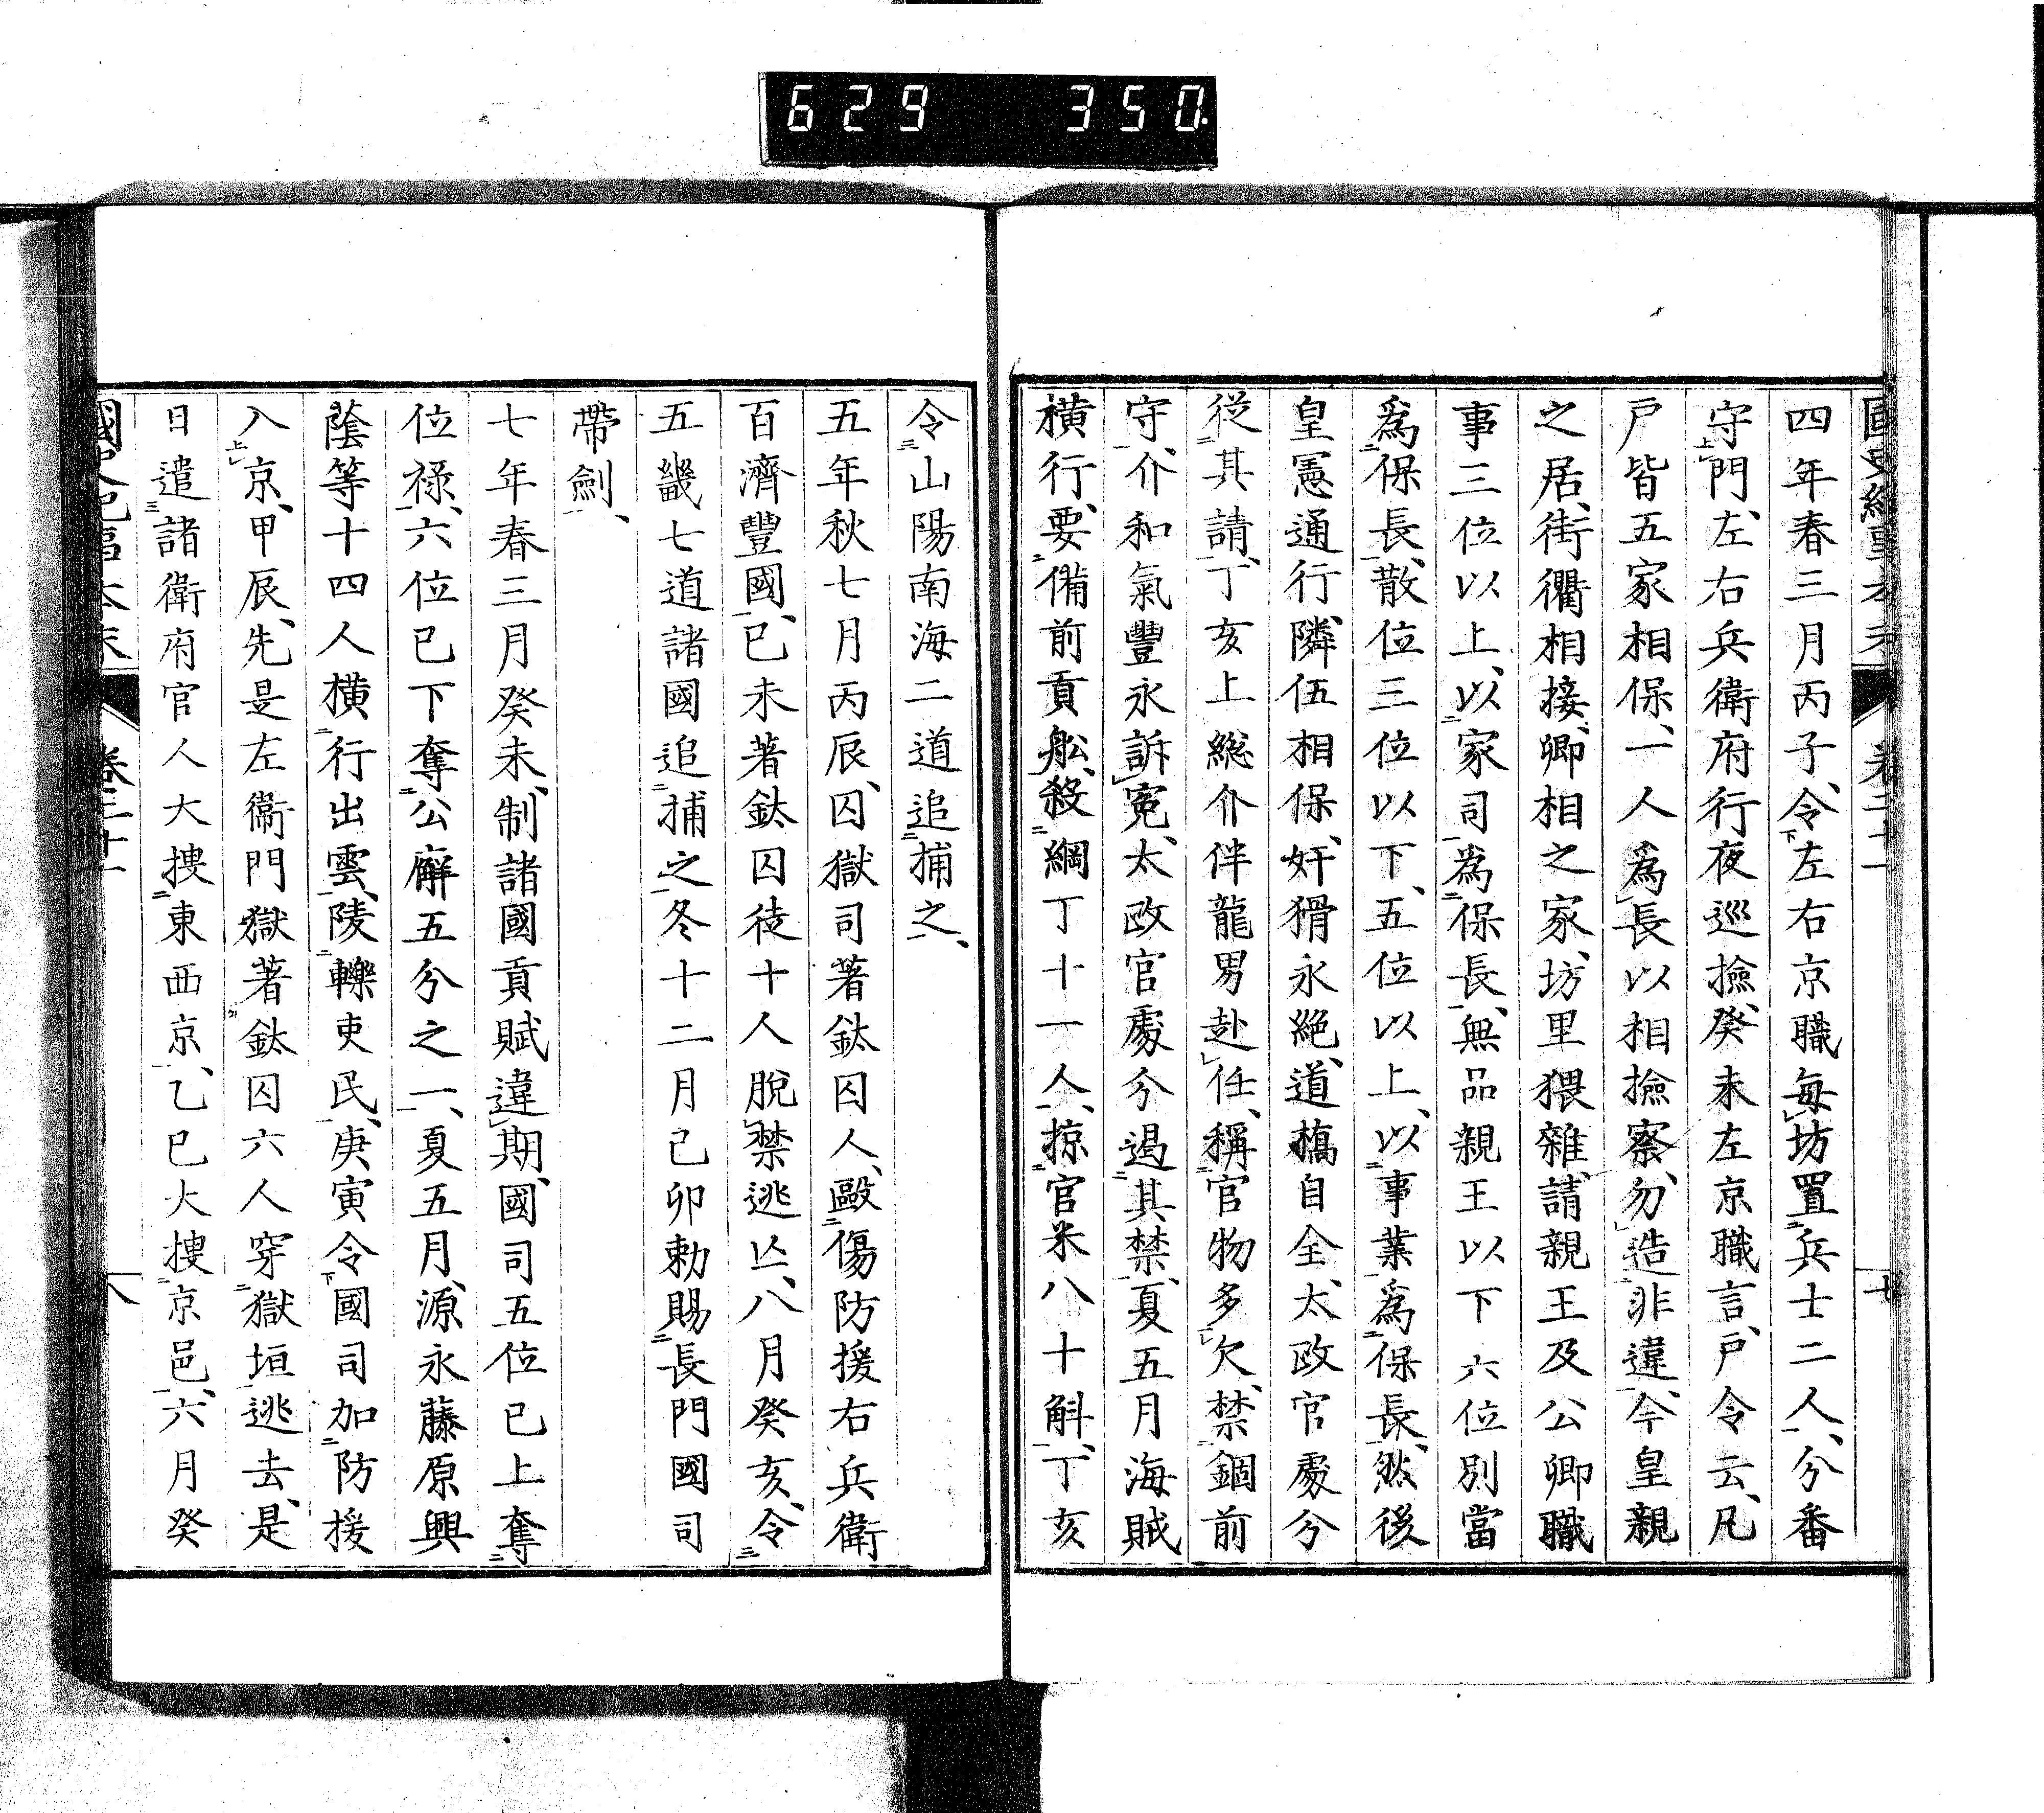 629 350.
國史紀事本末 卷二十一 七
四年春三月丙子、令左右京職毎坊置兵士二人、分番
守門、左右兵衛府行夜巡撿、癸未左京職言、戸令云、凡
戸皆五家相保、一人為長以相撿察、勿造非違、今皇親
之居、街衢相接、卿相之家、坊里猥雜、請親王及公卿職
事三位以上、以家司為保長、無品親王以下六位別當
為保長、散位三位以下、五位以上、以事業為保長、然後
皇憲通行、隣伍相保、奸猾永絕、道橋自全、太政官處分
從其請、丁亥上総介伴龍男赴任、稱官物多欠、禁錮前
守、介和氣豐永訴冤、太政官處分遏其禁、夏五月海賊
橫行、要備前貢舩、殺綱丁十一人、掠官米八十斛、丁亥
令山陽南海二道追捕之、
五年秋七月丙辰、囚獄司著釱囚人、毆傷防援右兵衛
百濟豐國、已未著釱囚徒十人脫禁逃亾、八月癸亥、令
五畿七道諸國追捕之冬十二月己卯勅賜長門國司
帶劍、
七年春三月癸未、制諸國貢賦違期、國司五位已上奪
位祿、六位已下奪公廨五分之一、夏五月、源永藤原興
蔭等十四人橫行出雲、陵轢吏民、庚寅令國司加防援
入京、甲辰、先是左衞門獄著釱囚六人穿獄垣逃去、是
日遣諸衛府官人大搜東西京、乙巳大搜京邑、六月癸
國史紀事本末 卷二十一 八